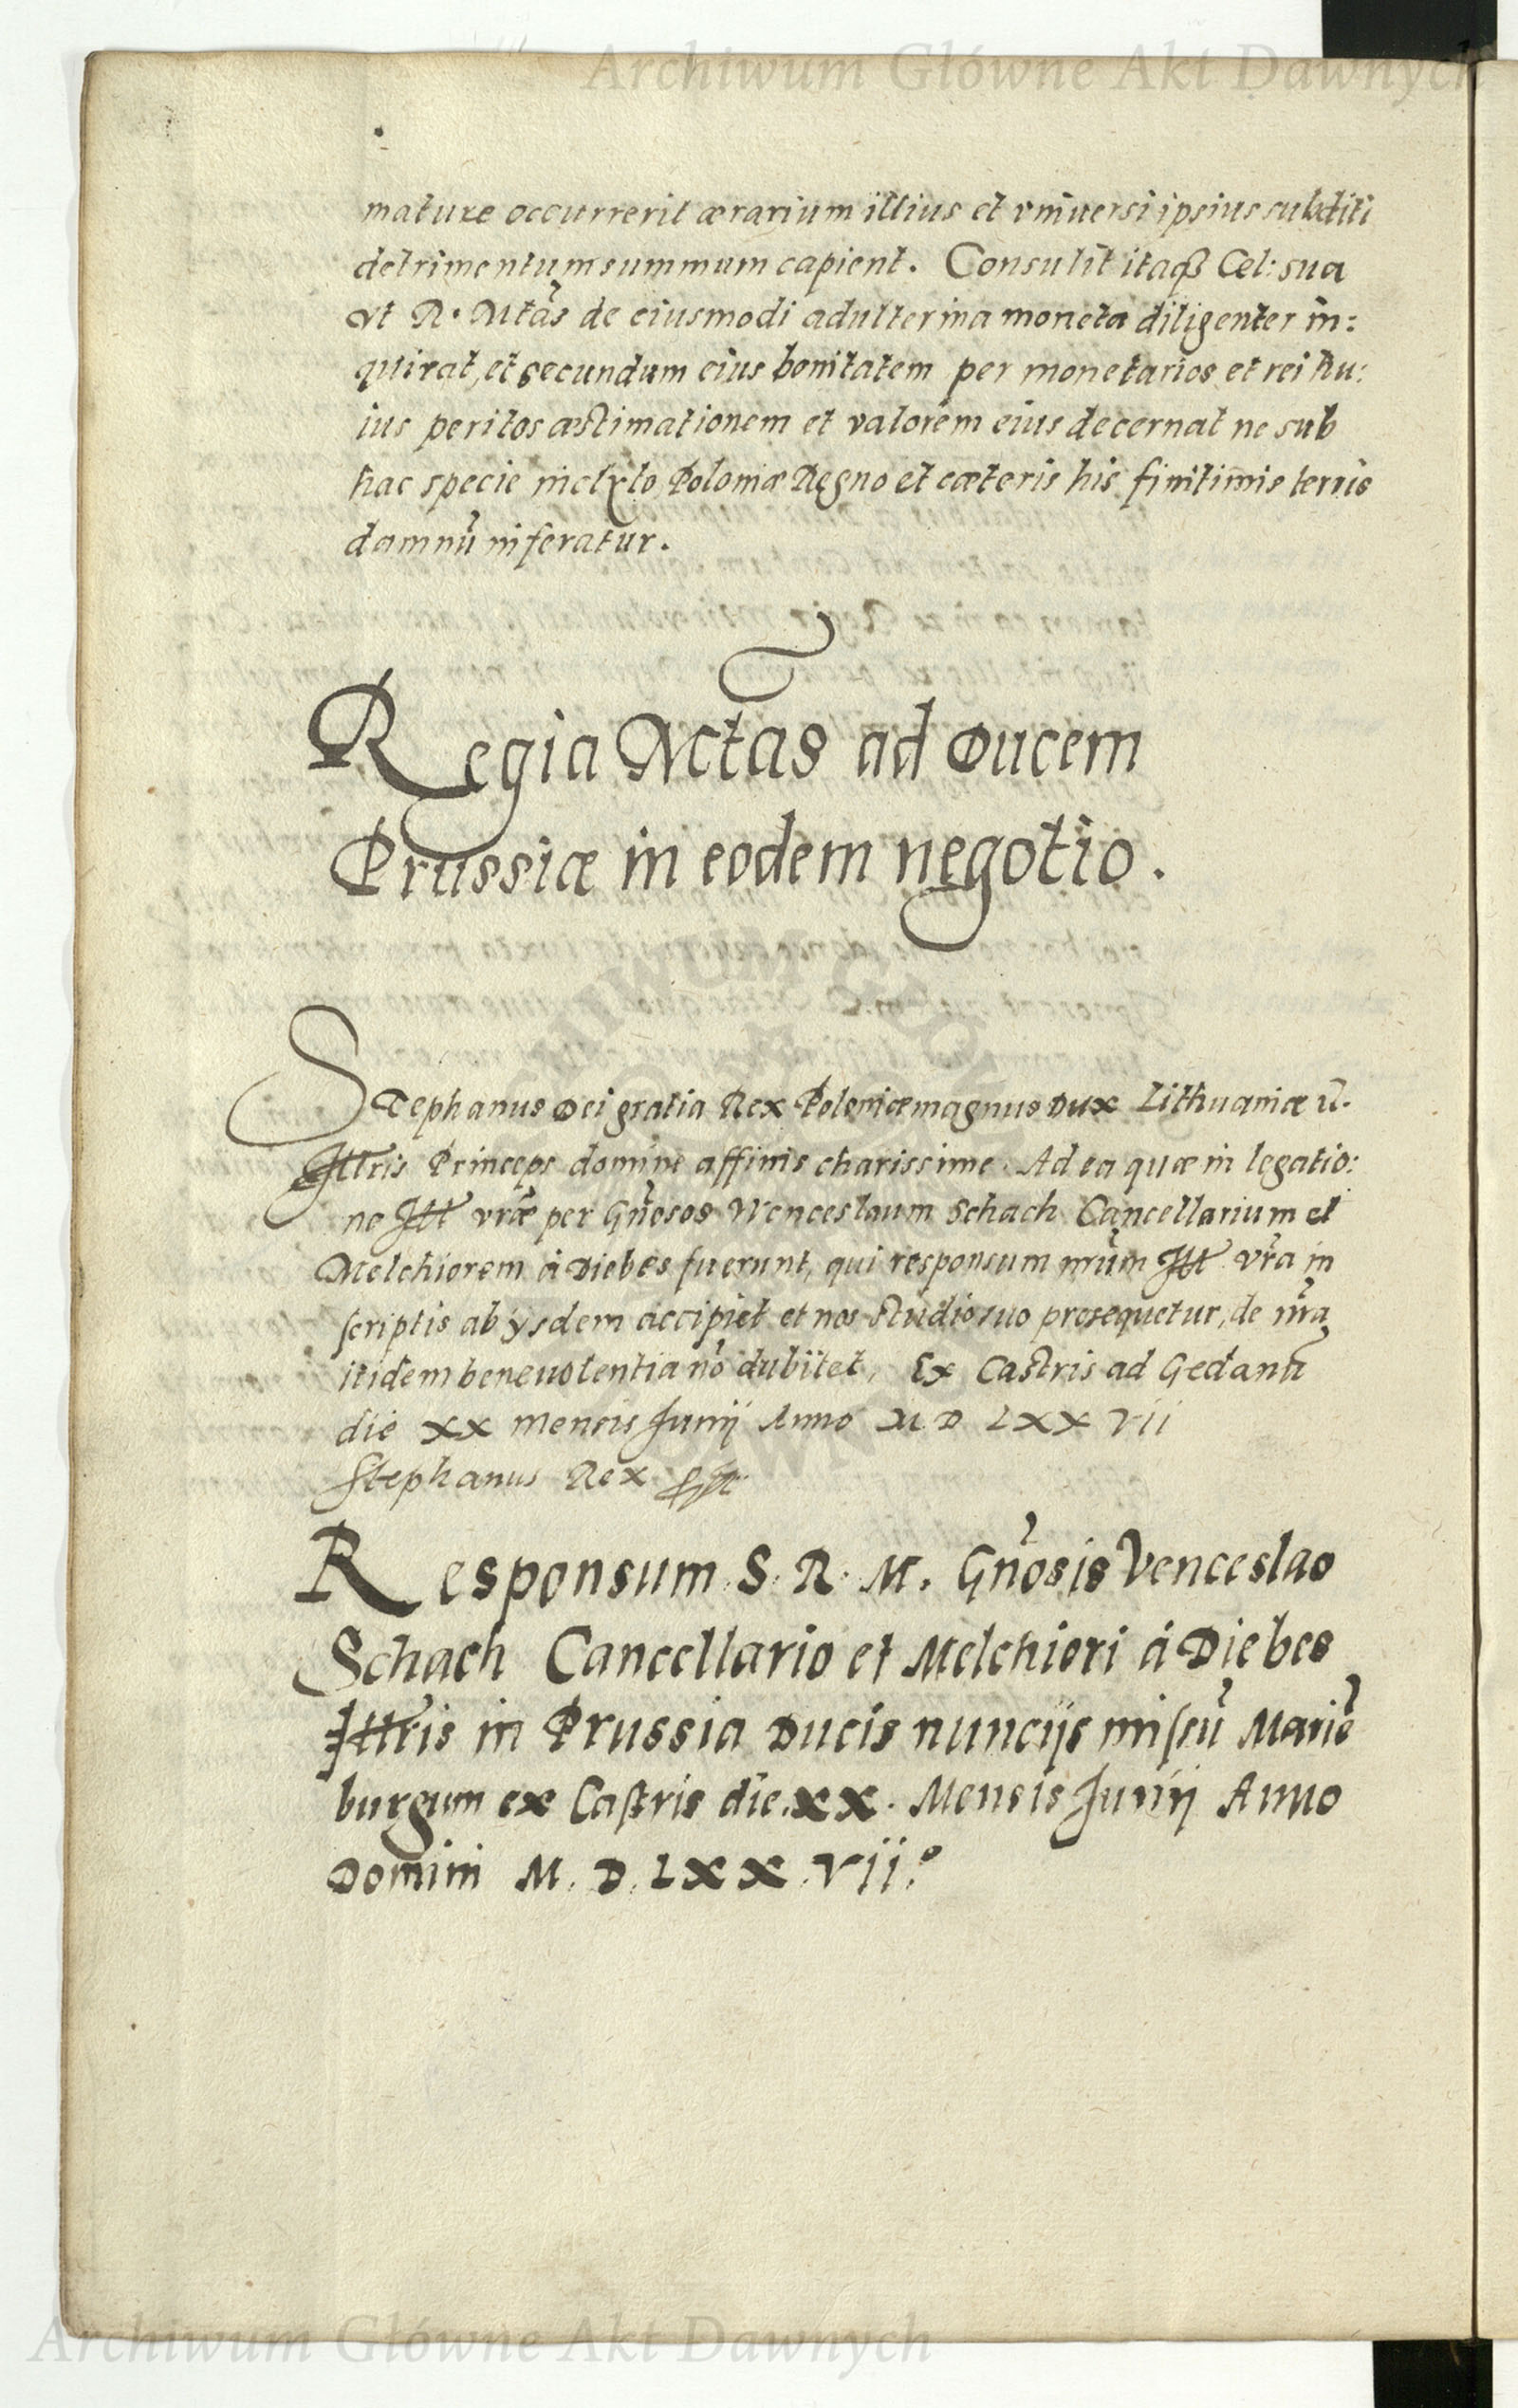 Archiwum Główne Akt Dawnych
mature occurrerit ærarium illius et vniuersi ipsius subditi
detrimentum summum capient. Consulit itaq3 Cel: sua
vt R. Mtas de eiusmodi adulterina moneta diligenter in:
quirat, et secundum eius bonitatem per monetarios et rei hu:
ius peritos æstimationem et valorem eius decernat ne sub
hac specie inclyto Poloniæ Regno et cæteris his finitimis terris
damnũ inferatur.
Regia Mtas ad Ducem
Prussiæ in eodem negotio.
Stephanus Dei gratia Rex Poloniæ magnus Dux Lithuaniæ
Illtris Princeps domine affinis charissime. Ad ea quæ in legatio:
ne Ill vræ per Gñosos Wenceslaum Schach Cancellarium et
Melchiorem à Diebes fuerunt, qui responsum nrũm Ill vra in
scriptis ab ysdem accipiet et nos studio suo prosequetur, de nra
itidem beneuolentia nõ dubitet, Ex Castris ad Gedanũ
die XX mensis Junij Anno M D LXXVII
Stephanus Rex
Responsum S. R. M. Gñosis Venceslao
Schach Cancellario et Melchiori à Diebes
Illtris in Prussia Ducis nuncijs missũ Mariẽ
burgum ex Castris die. XX. Mensis Junij Anno
Domini M. D. LXX. VII.°
Archiwum Główne Akt Dawnych